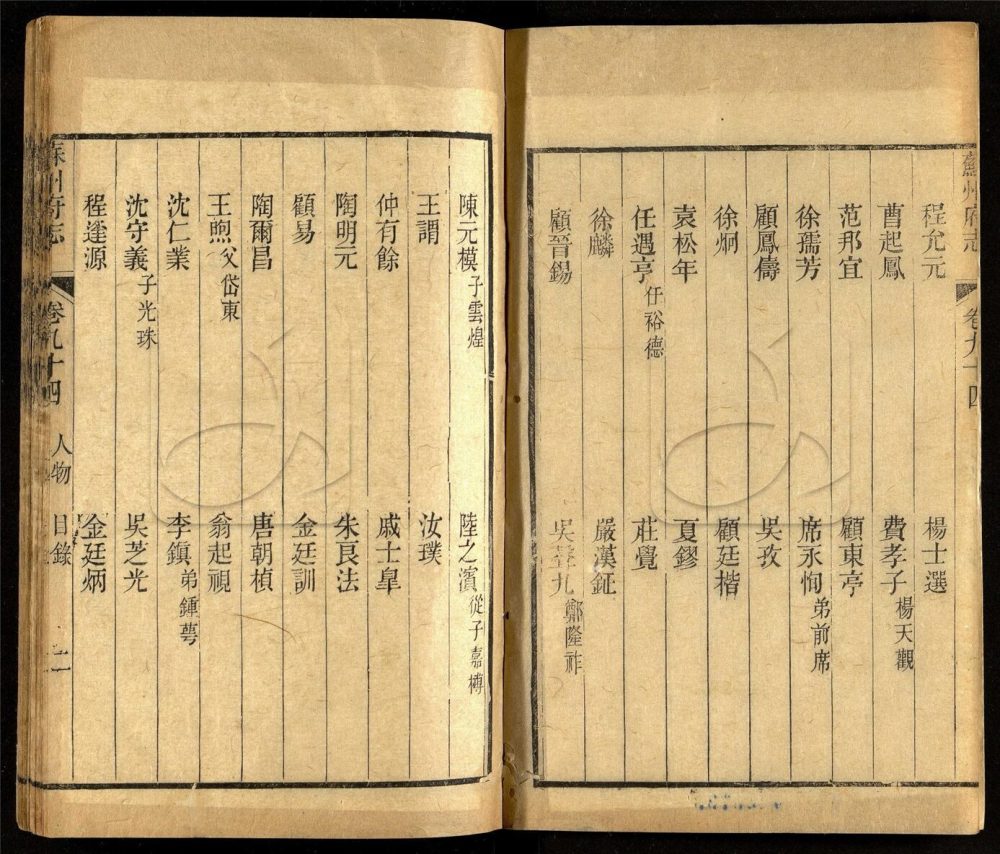 蘇州府志 卷九十四
程允元 楊士選
曹起鳳 費孝子 楊天觀
范邦宜 顧東亭
徐孺芳 席永恂 弟前席
顧鳳儔 吳孜
徐炯 顧廷楷
袁松年 夏鏐
任遇亨 任裕德 莊覺
徐麟 嚴漢鉦
顧晉錫 吳 九 鄭隆祚
陳元模 子雲煌 陸之濱 從子嘉榑
王謂 汝璞
仲有餘 戚士皐
陶明元 朱良法
顧易 金廷訓
陶爾昌 唐朝楨
王煦 父岱東 翁起視
沈仁業 李鎮 弟鍾萼
沈守義 子光珠 吳芝光
程逢源 金廷炳
蘇州府志 卷九十四 人物 目錄 二